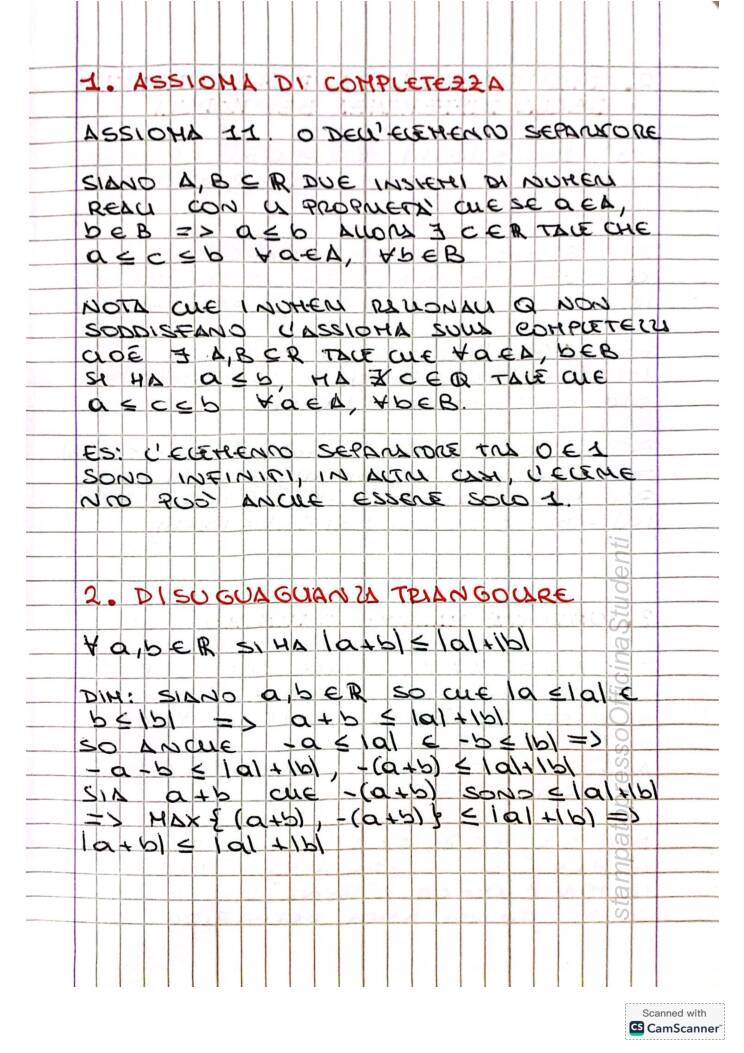 1. ASSIOMA DI COMPLETEZZA
ASSIOMA 11. O DELL'ELEMENTO SEPARATORE
SIANO A, B ⊆ ℝ DUE INSIEMI DI NUMERI
REALI CON LA PROPRIETÀ CHE SE a ∈ A,
b ∈ B => a ≤ b ALLORA ∃ C ∈ ℝ TALE CHE
a ≤ c ≤ b ∀a ∈ A, ∀b ∈ B
NOTA CHE I NUMERI RAZIONALI Q NON
SODDISFANO L'ASSIOMA SULLA COMPLETEZZA
CIOÈ ∃ A, B ⊆ ℝ TALE CHE ∀a ∈ A, b ∈ B
SI HA a ≤ b, MA ∄ C ∈ ℚ TALE CHE
a ≤ c ≤ b ∀a ∈ A, ∀b ∈ B.
ES: L'ELEMENTO SEPARATORE TRA 0 E 1
SONO INFINITI, IN ALTRI CASI, L'ELEME
NTO PUÒ ANCHE ESSERE SOLO 1.
2. DISUGUAGLIANZA TRIANGOLARE
∀ a, b ∈ ℝ SI HA |a+b| ≤ |a|+|b|
DIM: SIANO a, b ∈ ℝ SO CHE |a ≤ |a| E
b ≤ |b| => a + b ≤ |a| + |b|.
SO ANCHE -a ≤ |a| E -b ≤ |b| =>
-a-b ≤ |a| + |b|, -(a+b) ≤ |a|+|b|
SIA a+b CHE -(a+b) SONO ≤ |a|+|b|
=> MAX{(a+b), -(a+b)} ≤ |a| + |b| =>
|a+b| ≤ |a| + |b|
stampatopressoOfficinaStudenti
Scanned with
CS CamScanner